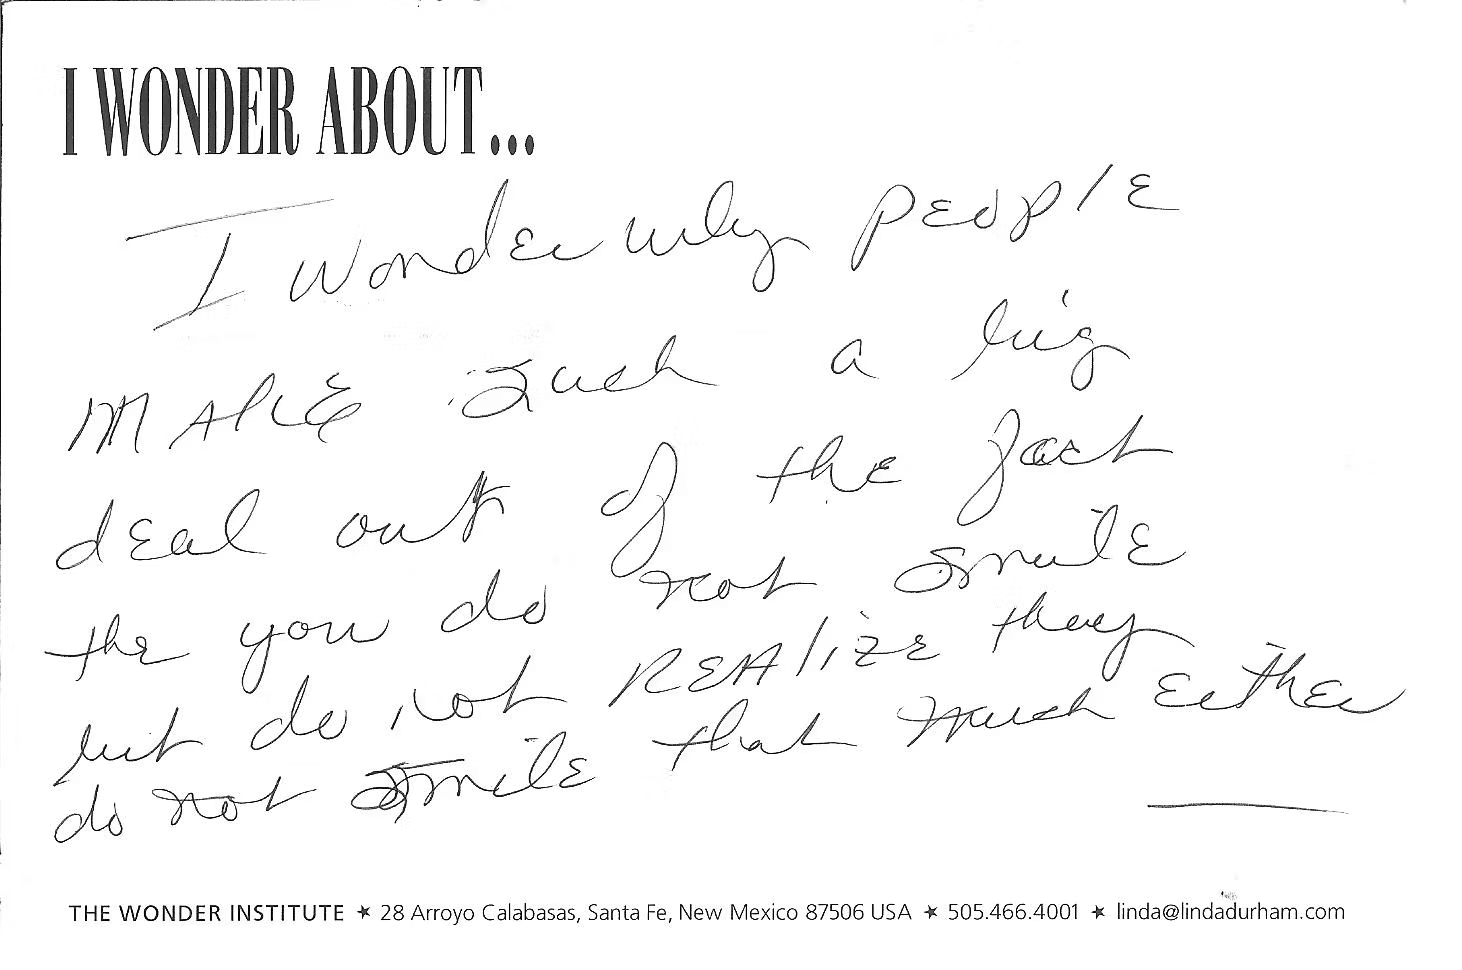 I WONDER ABOUT...
I wonder why people
MAKE such a big
deal out of the fact
the you do not smile
but do not REAlizE they
do not smile that much Either
THE WONDER INSTITUTE ★ 28 Arroyo Calabasas, Santa Fe, New Mexico 87506 USA ★ 505.466.4001 ★ linda@lindadurham.com